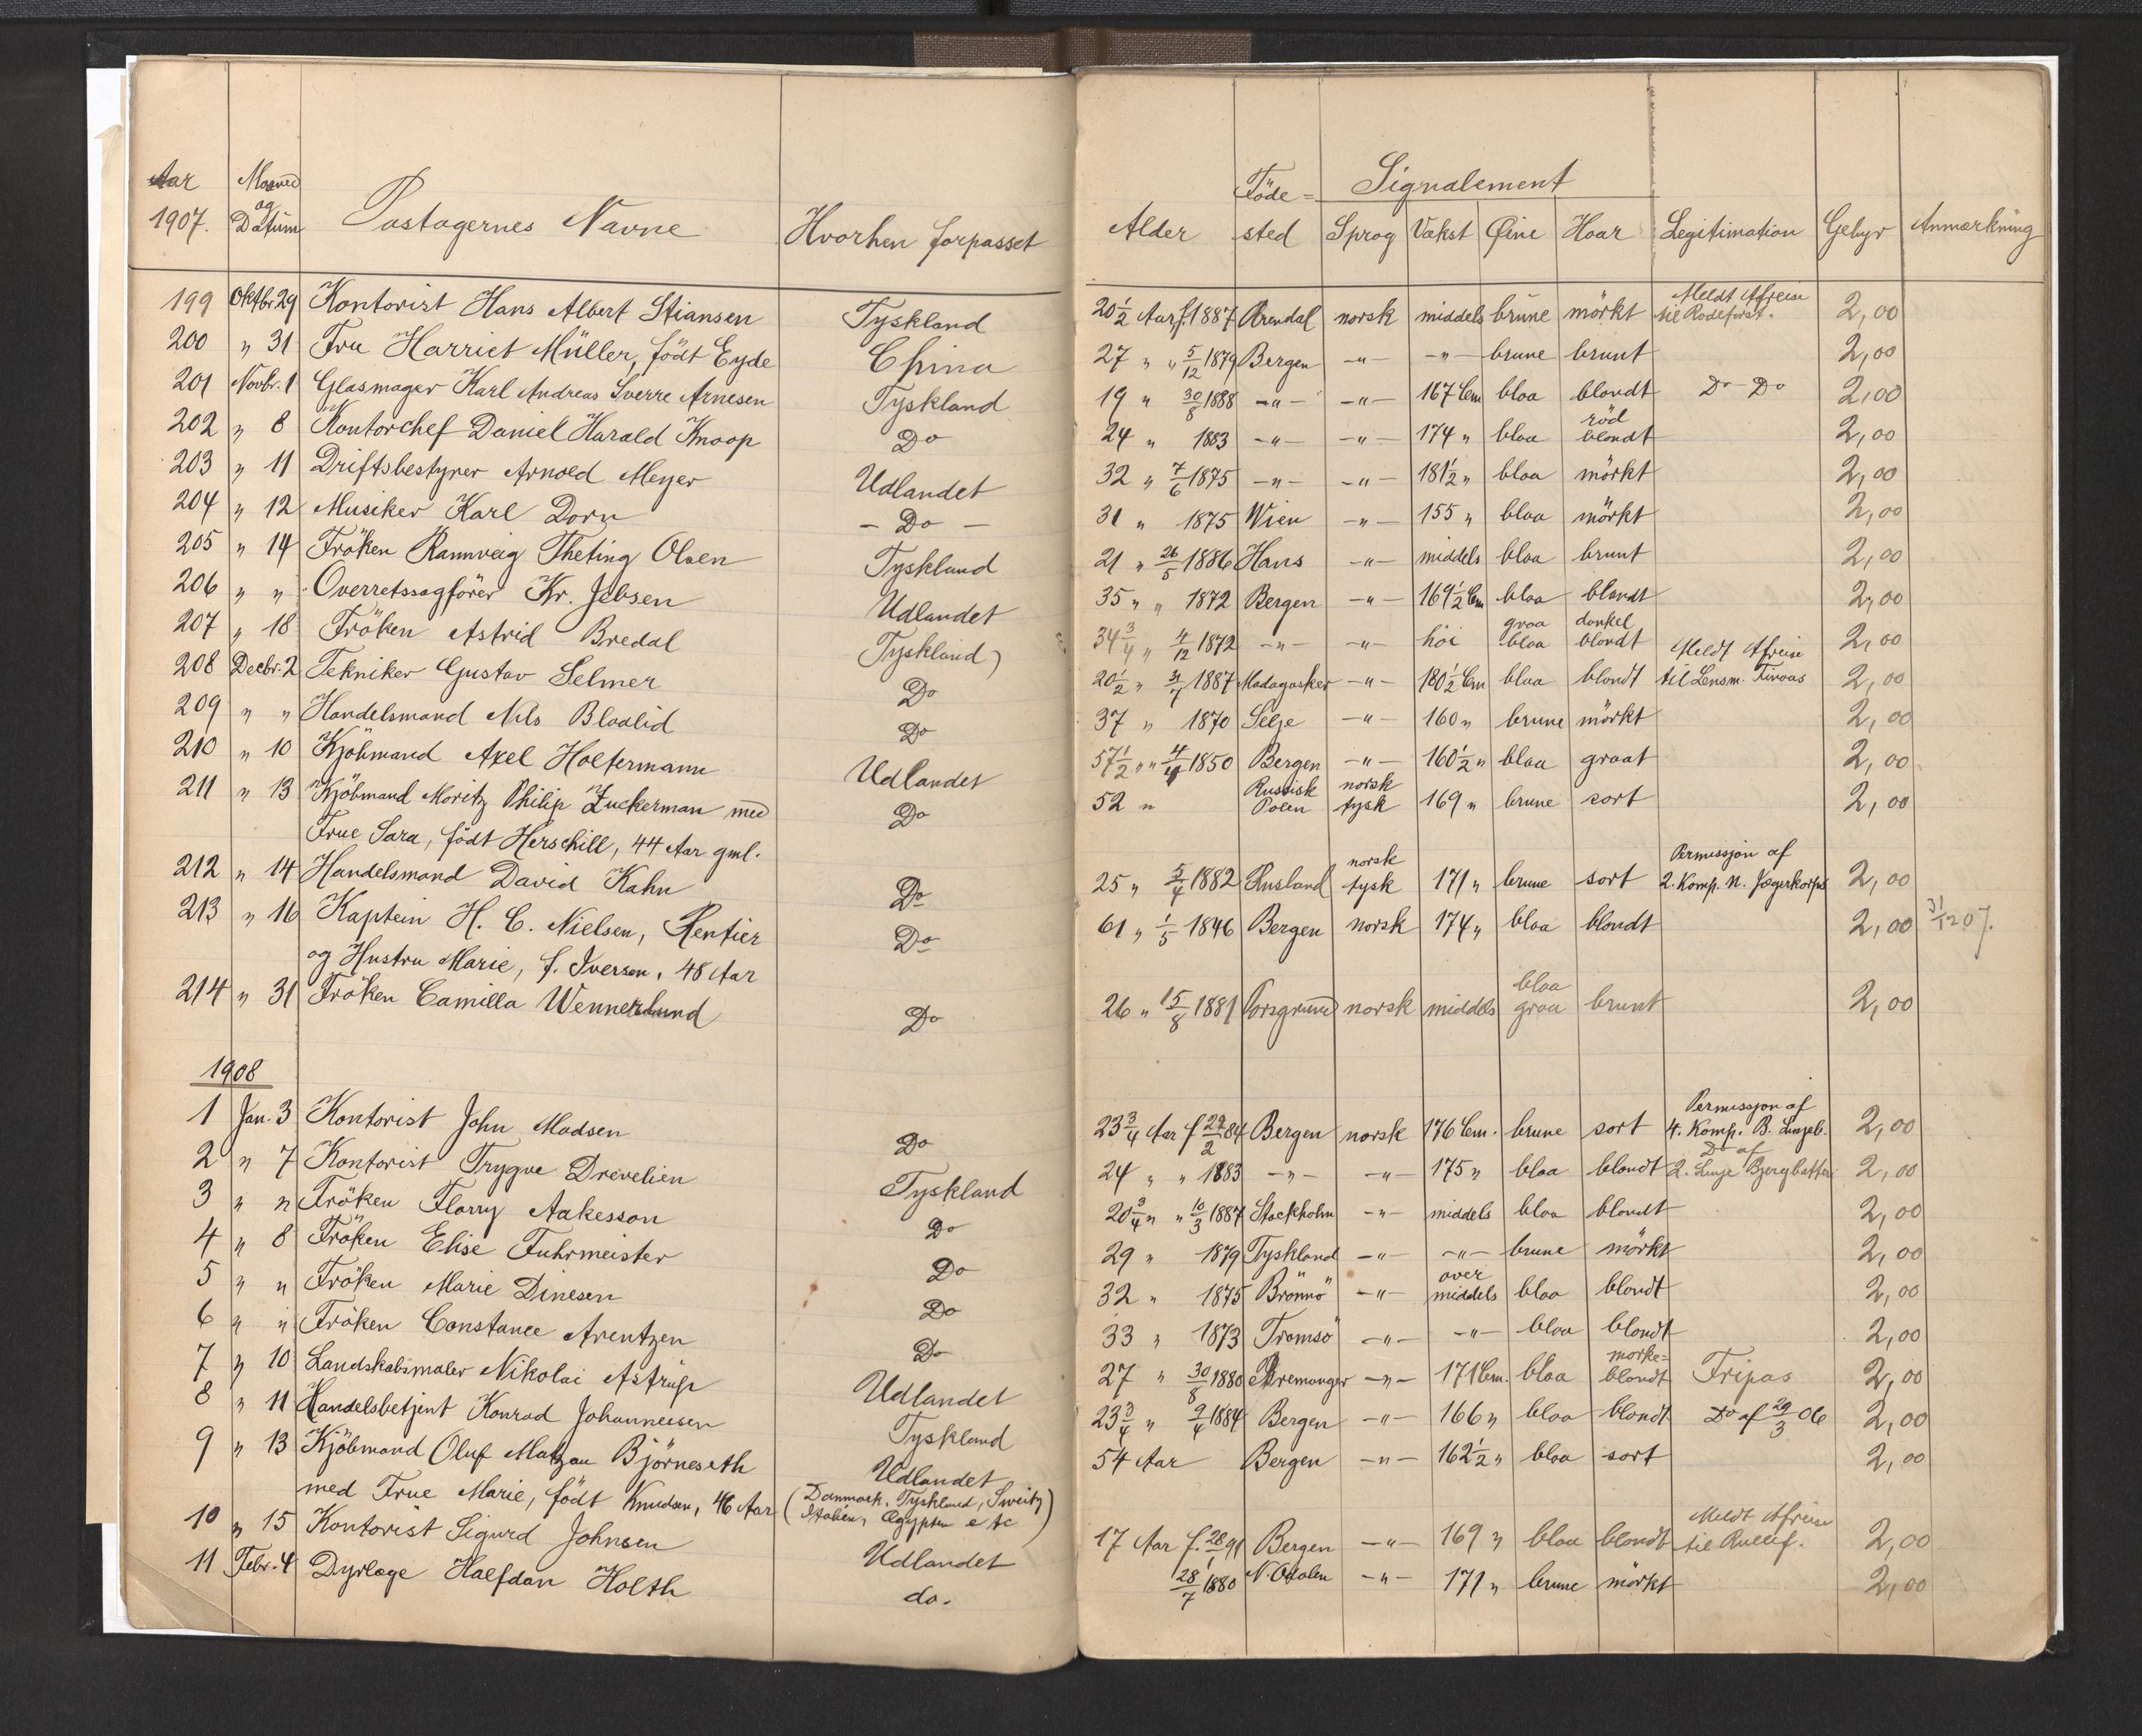 Aar Maaned og Datum Pastagernes Navne Hvorhen forpasset Alder Föde= sted Signalement Sprog Vækst Øine Haar Legitimation Gebyr Anmærkning
1907.
199 Oktbr. 29 Kontorist Hans Albert Stiansen Tyskland 20 1/2 Aar f. 1887 Arendal norsk middels brune mörkt Meldt Afreise til Rodeforst. 2,00
200 " 31 Fru Harriet Müller, födt Eyde China 27 " " 5/12 1879 Bergen -"- -"- brune brunt 2,00
201 Novbr. 1 Glasmager Karl Andreas Sverre Arnesen Tyskland 19 " 30/8 1888 -"- -"- 167 Cm bloa blondt Do Do 2,00
202 " 8 Kontorchef Daniel Harald Knoop Do 24 " 1883 -"- -"- 174 " bloa röd blondt 2,00
203 " 11 Driftsbestyrer Arnold Meyer Udlandet 32 " 7/6 1875 -"- -"- 181 1/2 " bloa mörkt 2,00
204 " 12 Musiker Karl Dorn - Do - 31 " 1875 Wien -"- 155 " bloa mörkt 2,00
205 " 14 Fröken Rannveig Theting Olsen Tyskland 21 " 26/5 1886 Hans -"- middels bloa brunt 2,00
206 " " Overretssagförer Kr. Jebsen Udlandet 35 " " 1872 Bergen -"- 169 1/2 Cm bloa blondt 2,00
207 " 18 Fröken Astrid Bredal Tyskland) 34 3/4 " 4/12 1872 -"- -"- höi graa bloa dunkel blondt 2,00
208 Decbr. 2 Tekniker Gustav Selmer Do 20 1/2 " 31/7 1887 Madagasker -"- 180 1/2 Cm bloa blondt Meldt Afreise til Lensm. 2,00
209 " " Handelsmand Nils Blaalid Do 37 " 1870 Selje -"- 160 " brune mörkt 2,00
210 " 10 Kjöbmand Axel Holtermann Udlandet 57 1/2 " " 4/4 1850 Bergen -"- 160 1/2 " bloa graat 2,00
211 " 13 Kjöbmand Moritz Philip Zuckerman med Do 52 " Russisk Polen norsk tysk 169 " brune sort 2,00
Frue Sara, födt Herschill, 44 Aar gml.
212 " 14 Handelsmand David Kahn Do 25 " 5/4 1882 Rusland norsk tysk 171 " brune sort Permissjon af 2. Komp. N. Jægerkorps 2,00
213 " 16 Kaptein H. C. Nielsen, Rentier Do 61 " 1/5 1846 Bergen norsk 174 " bloa blondt 2,00 31/12 07.
og Hustru Marie, f. Iversen, 48 Aar
214 " 31 Fröken Camilla Wennerlund Do 26 " 15/8 1881 Porsgrund norsk middels bloa graa brunt 2,00
1908
1 Jan. 3 Kontorist John Madsen Do 23 3/4 Aar f 27/2 84 Bergen norsk 176 Cm. brune sort Permissjon af 4. Komp. B. Linjeb. 2,00
2 " 7 Kontorist Trygve Drevelien Tyskland 24 " " 1883 -"- -"- 175 " bloa blondt Do af 2. Linje Bjergbatteri 2,00
3 " " Fröken Florry Aakesson Do 20 3/4 " " 10/3 1887 Stockholm -"- middels bloa blondt 2,00
4 " 8 Fröken Elise Fuhrmeister Do 29 " 1879 Tyskland -"- -"- brune mörkt 2,00
5 " " Fröken Marie Dinesen Do 32 " 1875 Brönnö -"- over middels bloa blondt 2,00
6 " " Fröken Constance Arentzen Do 33 " 1873 Tromsö -"- -"- bloa blondt 2,00
7 " 10 Landskabsmaler Nikolai Astrup Udlandet 27 " 30/8 1880 Bremanger -"- 171 Cm. bloa mörke= blondt Fripas 2,00
8 " 11 Handelsbetjent Konrad Johannesen Tyskland 23 3/4 " 9/4 1884 Bergen -"- 166 " bloa blondt Do af 29/3 06 2,00
9 " 13 Kjöbmand Oluf Matzau Björneseth Udlandet 54 Aar Bergen -"- 162 1/2 " bloa sort 2,00
med Frue Marie, födt Knudsen, 46 Aar (Danmark, Tyskland, Sweitz Italien, Ægypten etc)
10 " 15 Kontorist Sigurd Johnsen Udlandet 17 Aar f. 28/1 91 Bergen -"- 169 " bloa blondt Meldt Afreise til Rullef. 2,00
11 Febr. 4 Dyrlæge Halfdan Holth do. 28/7 1880 N. Odalen -"- 171 " brune mörkt 2,00